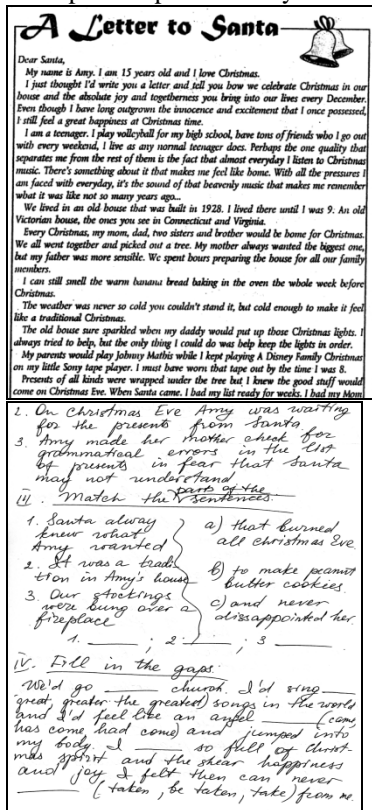 A Letter to Santa
Dear Santa,
My name is Amy. I am 15 years old and I love Christmas.
I just thought I'd write you a letter and tell you how we celebrate Christmas in our
house and the absolute joy and togetherness you bring into our lives every December.
Even though I have long outgrown the innocence and excitement that I once possessed,
I still feel a great happiness at Christmas time.
I am a teenager. I play volleyball for my high school, have tons of friends who I go out
with every weekend, I live as any normal teenager does. Perhaps the one quality that
separates me from the rest of them is the fact that almost everyday I listen to Christmas
music. There's something about it that makes me feel like home. With all the pressures I
am faced with everyday, it's the sound of that heavenly music that makes me remember
what it was like not so many years ago...
We lived in an old house that was built in 1928. I lived there until I was 9. An old
Victorian house, the ones you see in Connecticut and Virginia.
Every Christmas, my mom, dad, two sisters and brother would be home for Christmas.
We all went together and picked out a tree. My mother always wanted the biggest one,
but my father was more sensible. We spent hours preparing the house for all our family
members.
I can still smell the warm banana bread baking in the oven the whole week before
Christmas.
The weather was never so cold you couldn't stand it, but cold enough to make it feel
like a traditional Christmas.
The old house sure sparkled when my daddy would put up those Christmas lights. I
always tried to help, but the only thing I could do was help keep the lights in order.
My parents would play Johnny Mathis while I kept playing A Disney Family Christmas
on my little Sony tape player. I must have worn that tape out by the time I was 8.
Presents of all kinds were wrapped under the tree but I knew the good stuff would
come on Christmas Eve. When Santa came. I had my list ready for weeks. I had my Mom
2. On Christmas Eve Amy was waiting
for the presents from Santa.
3. Amy made her mother check for
grammatical errors in the list
of presents in fear that Santa
may not understand
III. Match the parts of the sentences.
1. Santa alway
knew what
Amy wanted
2. It was a tradi
tion in Amy's house
3. Our stockings
were hung over a
fireplace
a) that burned
all Christmas Eve.
b) to make peanut
butter cookies.
c) and never
dissappointed her.
1. ____ ; 2. ____ ; 3 ____
IV. Fill in the gaps.
We'd go ____ church. I'd sing ____
(great, greater, the greatest) songs in the world
and I'd feel like an angel ____ (came,
has come, had come) and jumped into
my body. I ____ so full of Christ-
mas spirit and the shear happiness
and joy I felt then can never
____ (taken, be taken, take) from me.